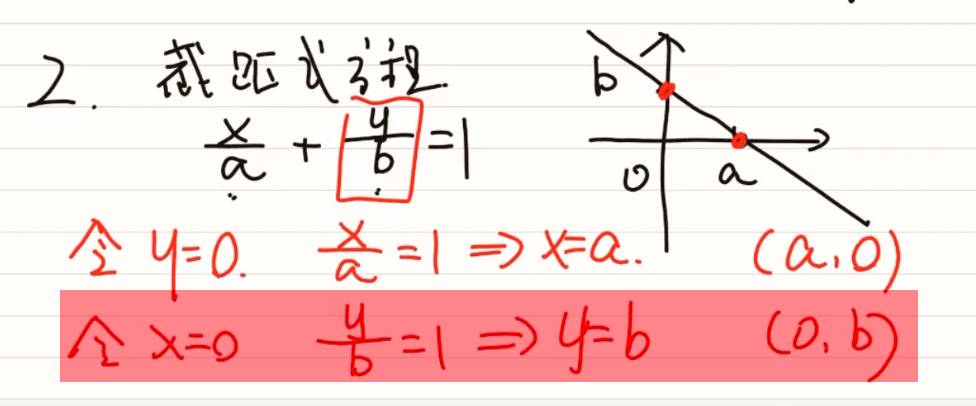 2. 截距式方程
x/a + y/b = 1
b
0 a
令 y=0. x/a = 1 ⇒ x=a. (a,0)
令 x=0 y/b = 1 ⇒ y=b (0,b)